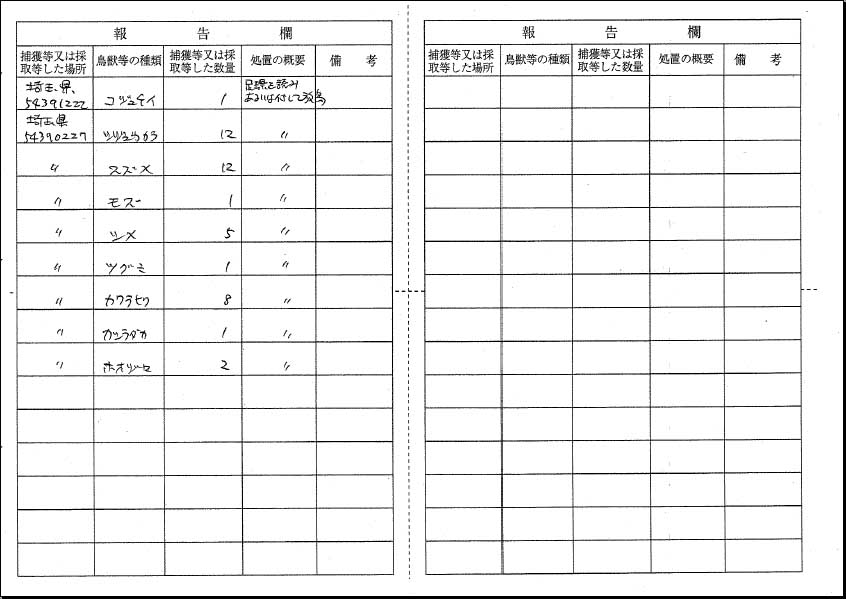 報告欄
捕獲等又は採取等した場所 鳥獣等の種類 捕獲等又は採取等した数量 処置の概要 備考
埼玉県、 足環を読み
54391222 コジュケイ 1 あるいは付して放鳥
埼玉県
54390227 シジュウカラ 12 〃
〃 スズメ 12 〃
〃 モズ 1 〃
〃 シメ 5 〃
〃 ツグミ 1 〃
〃 カワラヒワ 8 〃
〃 カシラダカ 1 〃
〃 ホオジロ 2 〃
報告欄
捕獲等又は採取等した場所 鳥獣等の種類 捕獲等又は採取等した数量 処置の概要 備考